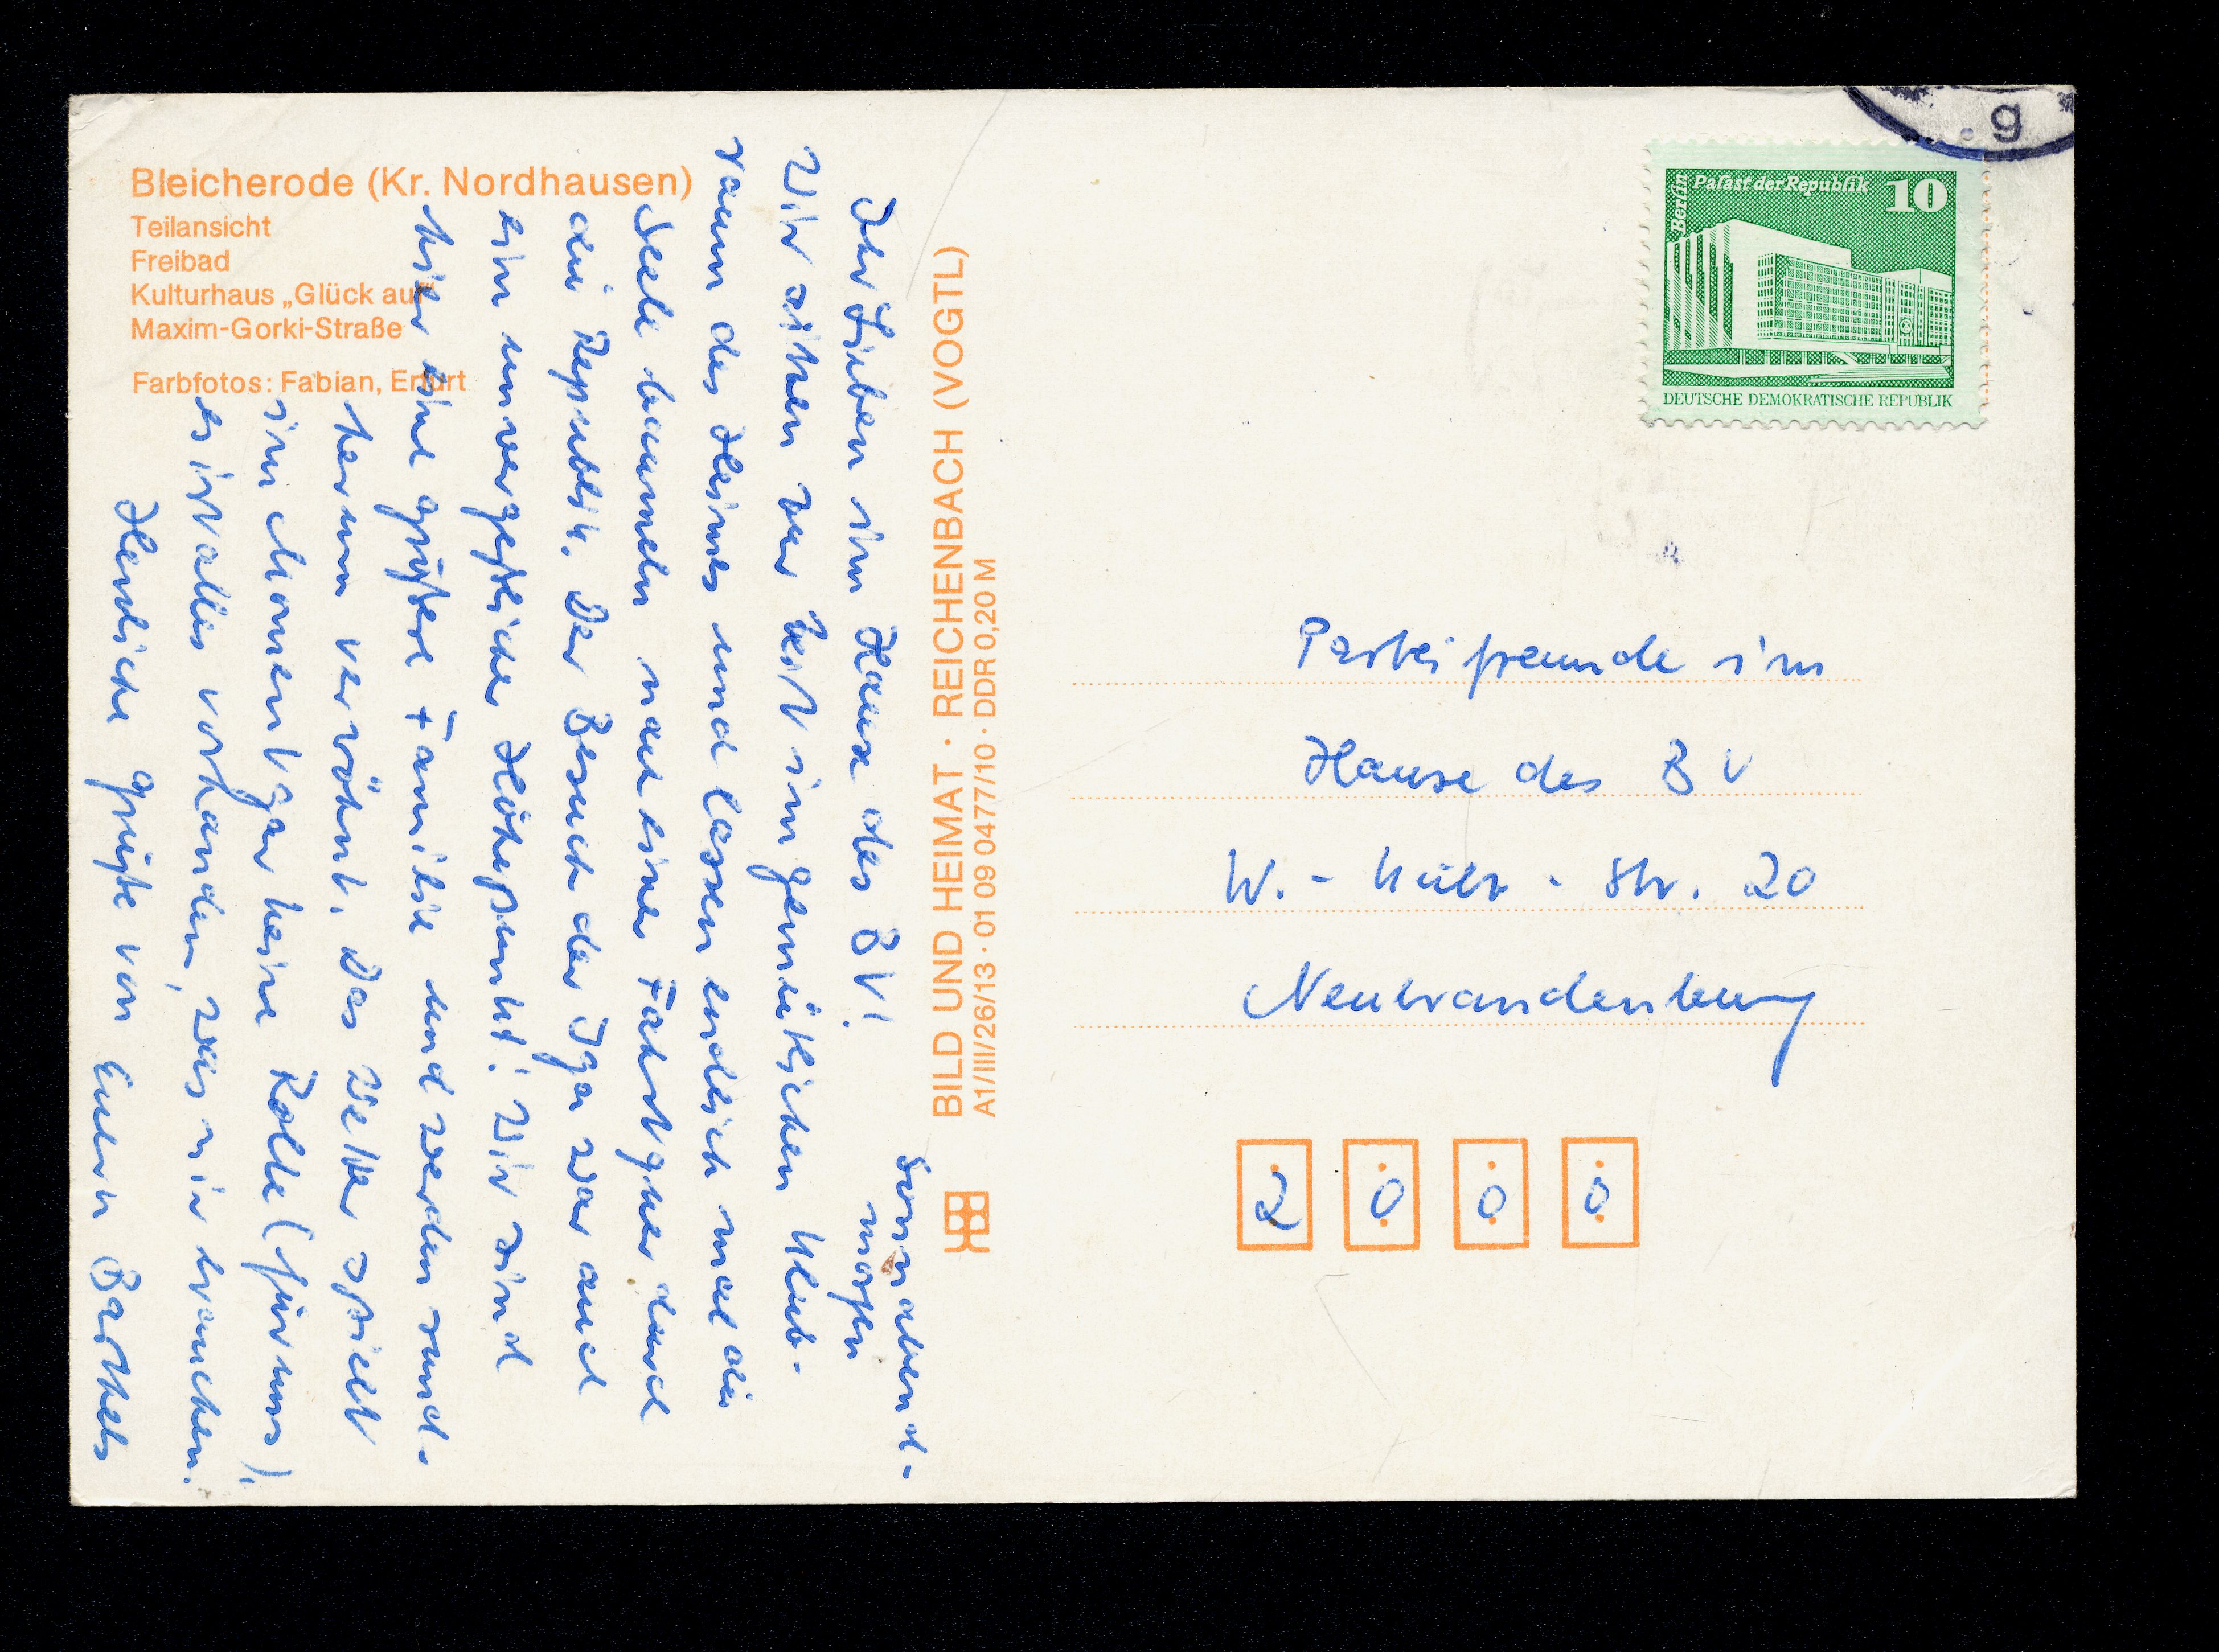 Bleicherode (Kr. Nordhausen)
Teilansicht
Freibad
Kulturhaus „Glück auf“
Maxim-Gorki-Straße
Farbfotos: Fabian, Erfurt
Sonnabend-
morgen
Ihr Lieben im Hause des BV!
Wir sitzen zur Zeit im gemütlichen Klub-
raum des Heimes und lassen endlich mal die
Seele baumeln nach einer Fahrt quer durch
die Republik. Der Besuch der Iga war auch
ein unvergeßlicher Höhepunkt! Wir sind
hier eine größere Familie und werden rund-
herum verwöhnt. Das Wetter spielt
im Moment gar keine Rolle (für uns),
es ist alles vorhanden, was wir brauchen.
Herzliche Grüße von Euern Barthels
BILD UND HEIMAT · REICHENBACH (VOGTL)
A1/III/26/13 · 01 09 0477/10 · DDR 0,20 M
g
Berlin
Palast der Republik 10
DEUTSCHE DEMOKRATISCHE REPUBLIK
Parteifreunde im
Hause des BV
W.- Külz - Str. 20
Neubrandenburg
2 0 0 0